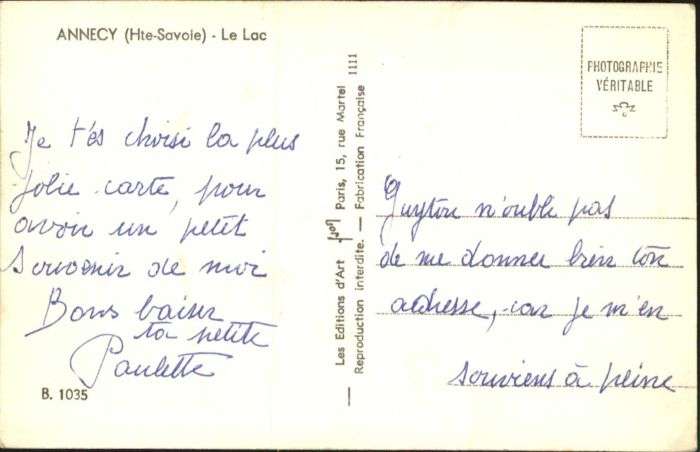 ANNECY (Hte-Savoie) - Le Lac
Je t'és choisi la plus
jolie carte, pour
avoir un petit
souvenir de moi
Bons baiser
ta petite
Paulette
B. 1035
Les Editions d'Art Paris, 15, rue Martel 1111
Reproduction interdite. — Fabrication Française
PHOTOGRAPHIE
VÉRITABLE
Guyton n'oublé pas
de me donner bien ton
adresse, car je m'en
souviens à peine